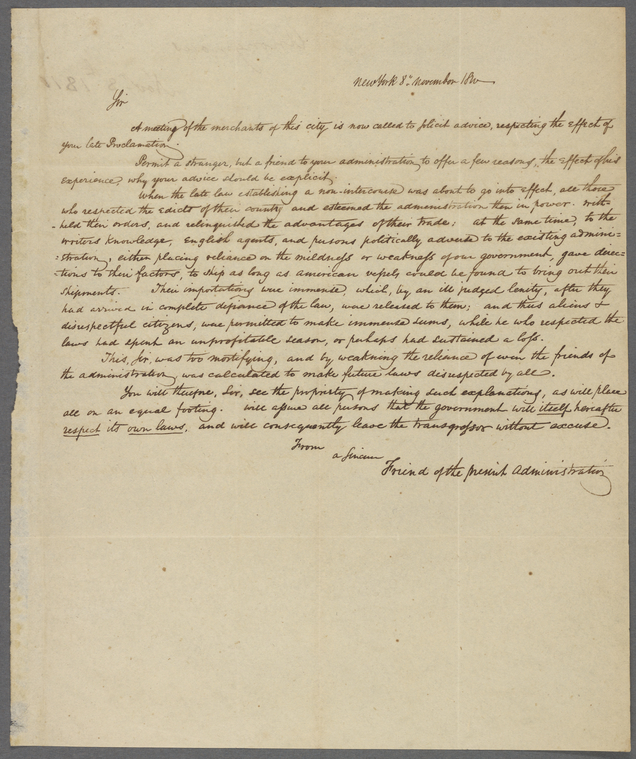 New York 8th November 1810
Sir
A meeting of the merchants of this city is now called to solicit advice, respecting the effect of
your late Proclamation.
Permit a stranger, but a friend to your administration, to offer a few reasons, the effect of his
experience, why your advice should be explicit.
When the late law establishing a non-intercourse was about to go into effect, all those
who respected the edicts of their country and esteemed the administration then in power. with-
-held their orders, and relinquished the advantages of their trade; at the same time, to the
writers knowledge, English agents, and persons politically adverse to the existing admini-
-stration, either placing reliance on the mildness or weakness of our government, gave direc-
-tions to their factors, to ship as long as american vessels could be found to bring out their
shipments. Their importations were immense, which, by an ill judged lenity, after they
had arrived in complete defiance of the law, were released to them; and thus aliens &
disrespectful citizens, were permitted to make immense sums, while he who respected the
laws had spent an unprofitable season, or perhaps had sustained a loss.
This, Sir, was too mortifying, and by weakning the reliance of even the friends of
the administration, was calculated to make future laws disrespected by all.
You will therefore, Sir, see the propriety of making such explanations, as will place
all on an equal footing. will assure all persons that the government will itself hereafter
respect its own laws, and will consequently leave the transgressor without excuse.
From
a Sincere
Friend of the present Administration